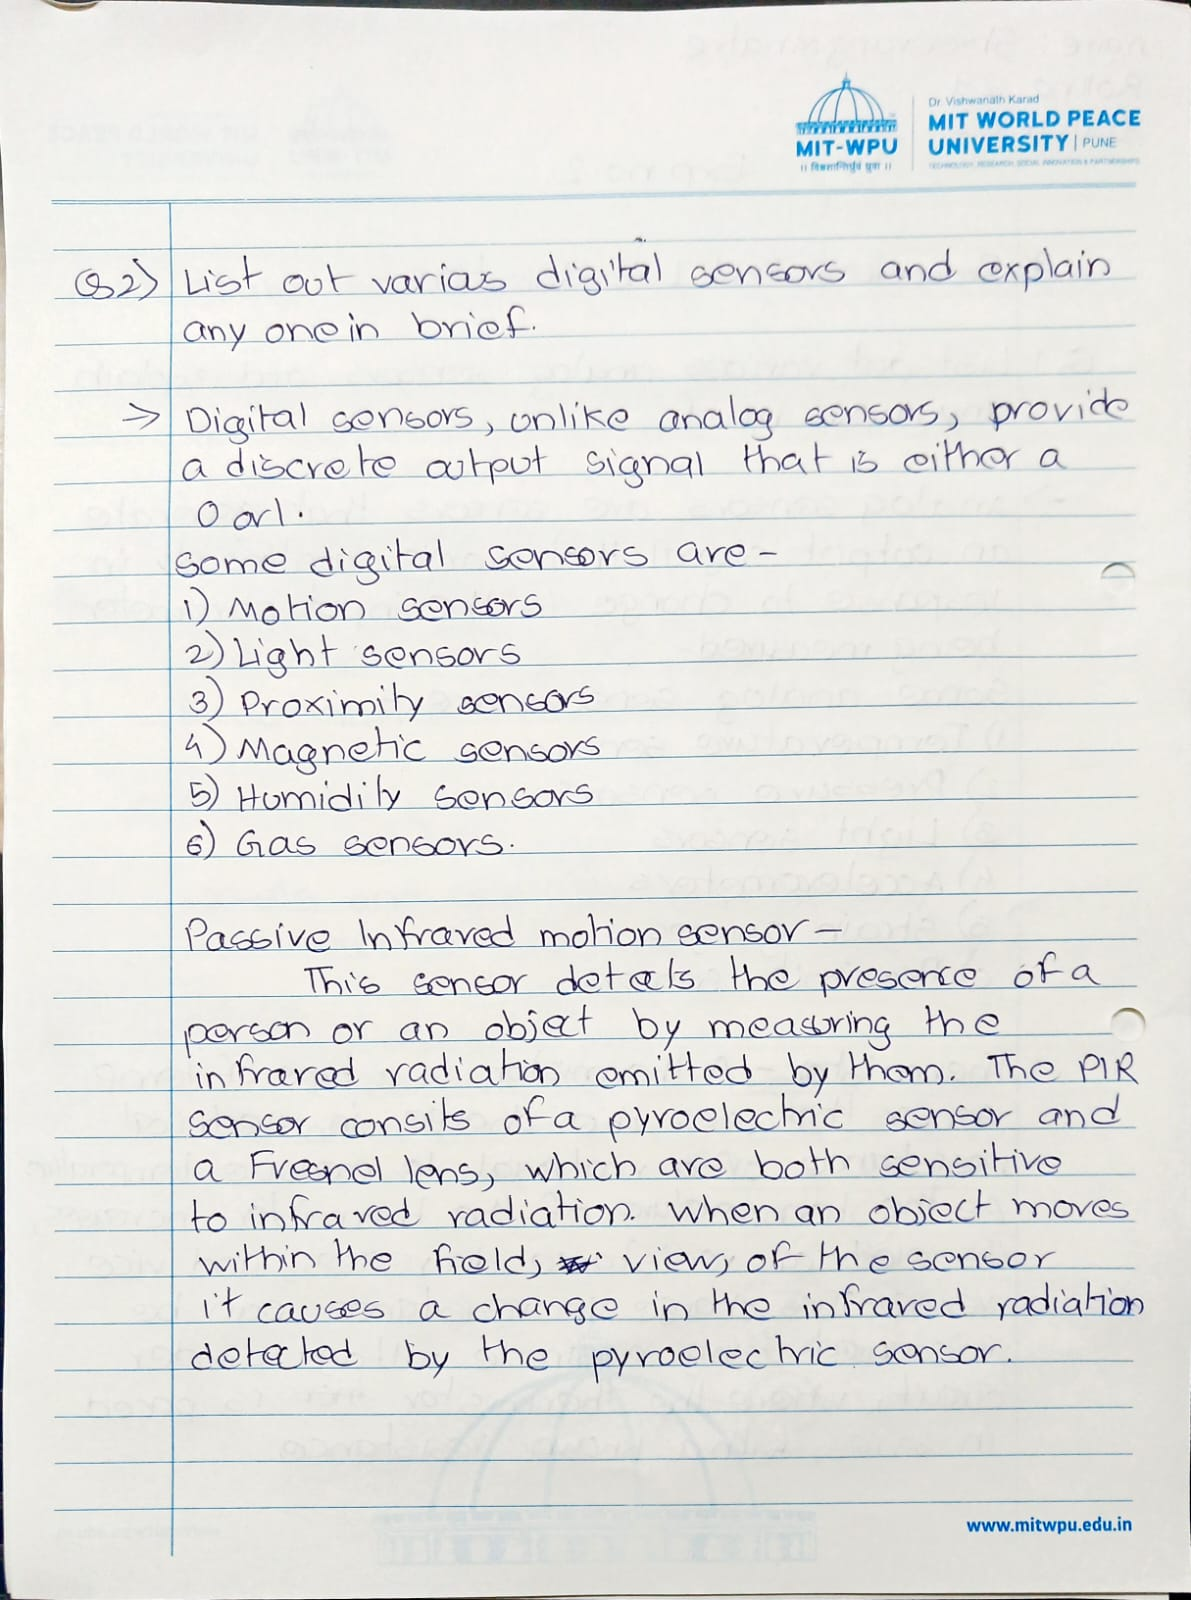 Dr. Vishwanath Karad
MIT WORLD PEACE
UNIVERSITY | PUNE
TECHNOLOGY, RESEARCH, SOCIAL INNOVATION & PARTNERSHIPS
MIT-WPU
॥ विश्वशान्तिर्ध्रुवं ध्रुवा ॥
Q2) List out varias digital sensors and explain
any one in brief.
→ Digital sensors, unlike analog sensors, provide
a discrete output signal that is either a
0 or 1.
some digital sensors are -
1) Motion sensors
2) Light sensors
3) Proximity sensors
4) Magnetic sensors
5) Humidity sensors
6) Gas sensors.
Passive Infrared motion sensor -
This sensor detects the presence of a
person or an object by measuring the
infrared radiation emitted by them. The PIR
sensor consits of a pyroelectric sensor and
a Fresnel lens, which are both sensitive
to infrared radiation. When an object moves
within the field, view, of the sensor
it causes a change in the infrared radiation
detected by the pyroelectric sensor.
www.mitwpu.edu.in